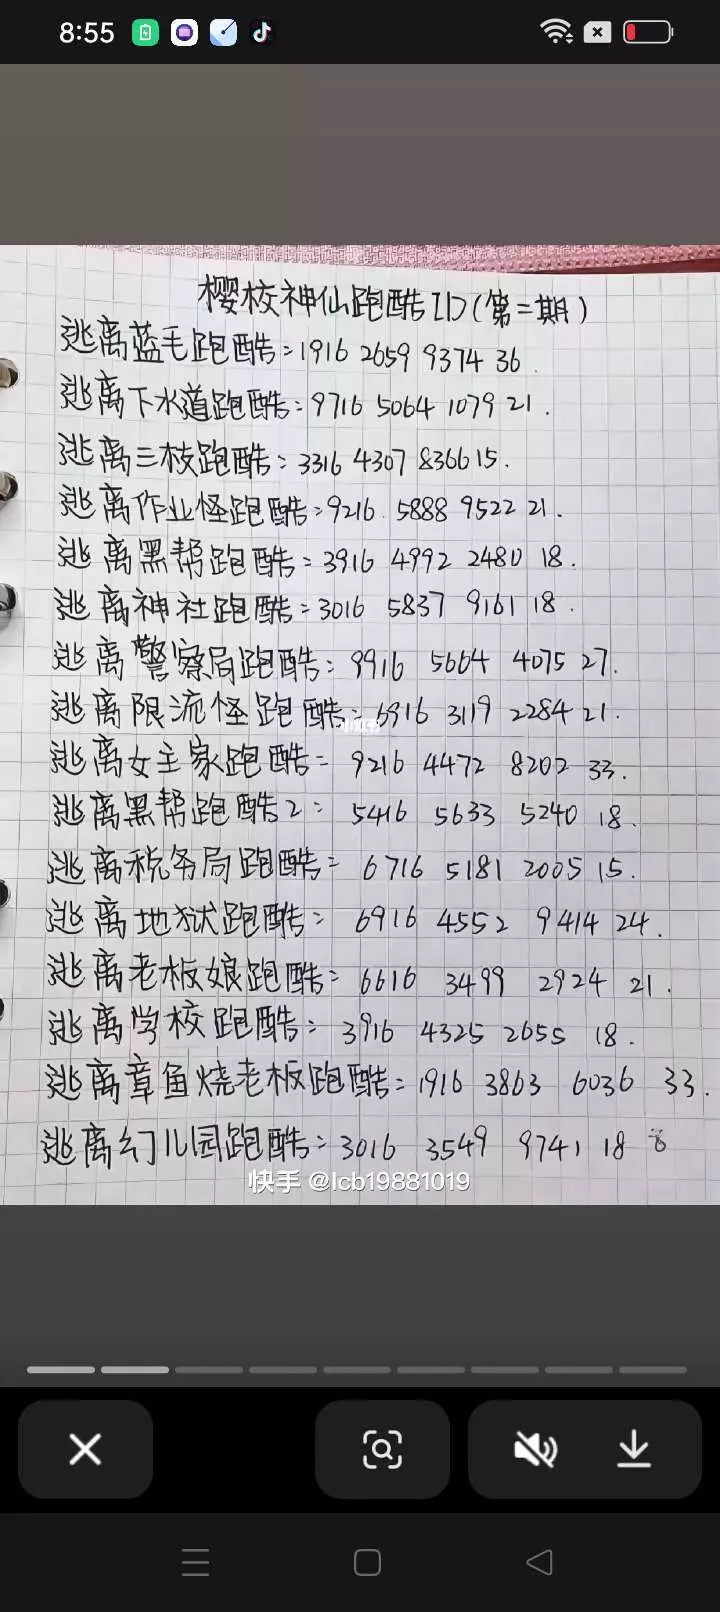 8:55
樱校神仙跑酷ID(第二期)
逃离蓝毛跑酷:1916 2659 9374 36.
逃离下水道跑酷:9716 5064 1079 21.
逃离三枝跑酷:3316 4307 8366 15.
逃离作业怪跑酷:9216 5888 9522 21.
逃离黑帮跑酷:3916 4992 2480 18.
逃离神社跑酷:3016 5837 9161 18.
逃离警察局跑酷:9916 5664 4075 27.
逃离限流怪跑酷:6916 3119 2284 21.
逃离女主家跑酷:9216 4472 8202 33.
逃离黑帮跑酷2:5416 5633 5240 18.
逃离税务局跑酷:6716 5181 2005 15.
逃离地狱跑酷:6916 4552 9414 24.
逃离老板娘跑酷:6616 3499 2924 21.
逃离学校跑酷:3916 4325 2655 18.
逃离章鱼烧老板跑酷:1916 3863 6036 33.
逃离幻儿园跑酷:3016 3549 9741 18
快手 @lcb19881019